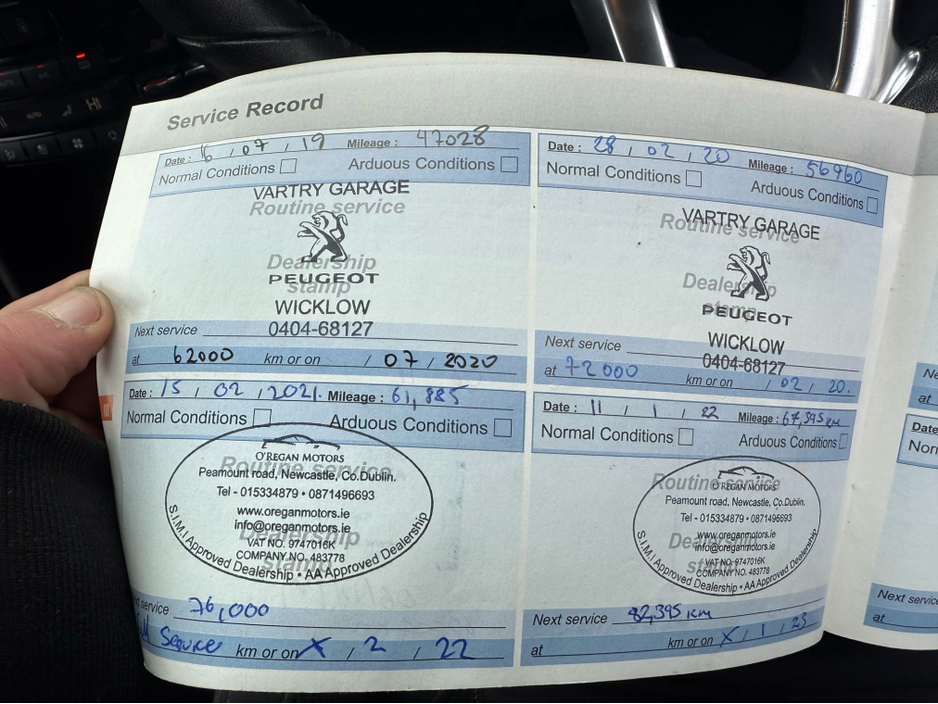 Service Record
Date : 16 / 07 / 19 Mileage : 47028
Normal Conditions Arduous Conditions
VARTRY GARAGE
Routine service
Dealership
stamp
PEUGEOT
WICKLOW
Next service 0404-68127
at 62000 km or on / 07 / 2020
Date : 28 / 02 / 20 Mileage : 56960
Normal Conditions Arduous Conditions
VARTRY GARAGE
Routine service
Dealership
stamp
PEUGEOT
WICKLOW
Next service 0404-68127
at 72000 km or on / 02 / 20.
Date : 15 / 02 / 2021. Mileage : 61,885
Normal Conditions Arduous Conditions
O'REGAN MOTORS
Routine service
Peamount road, Newcastle, Co.Dublin.
Tel - 015334879 • 0871496693
www.oreganmotors.ie
info@oreganmotors.ie
Dealership
stamp
VAT NO. 9747016K
COMPANY NO. 483778
S.I.M.I Approved Dealership • AA Approved Dealership
service 76,000
Service km or on X / 2 / 22
Date : 11 / 1 / 22 Mileage : 67,395 km
Normal Conditions Arduous Conditions
Routine service
O'REGAN MOTORS
Peamount road, Newcastle, Co.Dublin.
Tel - 015334879 • 0871496693
www.oreganmotors.ie
info@oreganmotors.ie
Dealership
stamp
VAT NO. 9747016K
COMPANY NO. 483778
S.I.M.I Approved Dealership • AA Approved Dealership
Next service 82,395 km
at km or on X / 1 / 23
Date
Next service
at